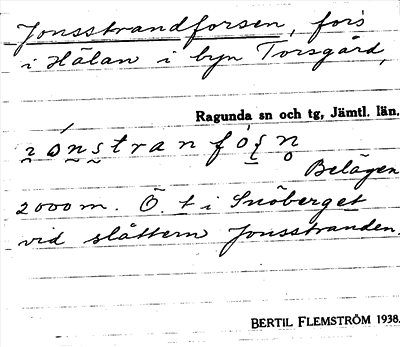 Jonsstrandforsen, fors
i Hälan i byn Torsgård,
Ragunda sn och tg, Jämtl. län.
Belägen
2000 m. Ö. t i Snöberget
vid slåttern Jonsstranden.
BERTIL FLEMSTRÖM 1938.